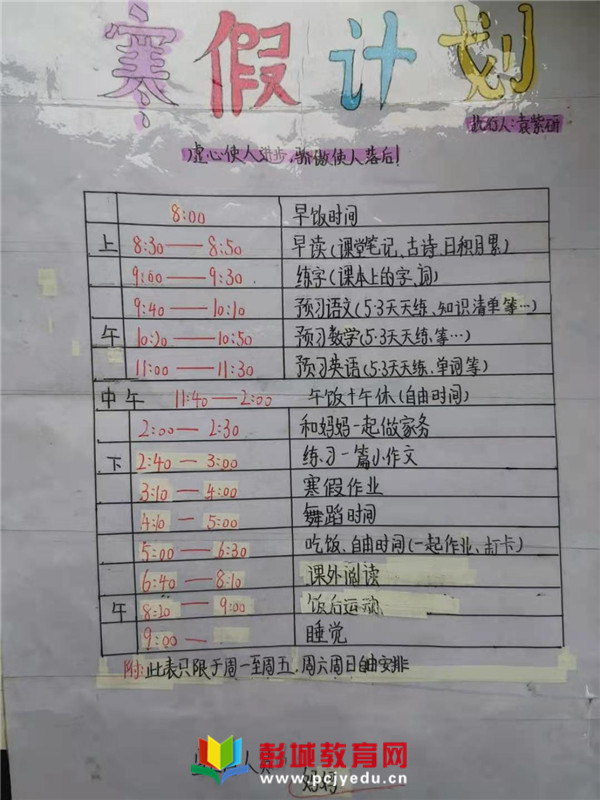 寒假计划
执行人:袁紫研
虚心使人进步,骄傲使人落后!
8:00 早饭时间
上 8:30——8:50 早读(课堂笔记、古诗、日积月累)
9:00——9:30 练字(课本上的字、词)
9:40——10:10 预习语文(5·3天天练、知识清单等…)
午 10:20——10:50 预习数学(5·3天天练、等…)
11:00——11:30 预习英语(5·3天天练、单词等)
中午 11:40——2:00 午饭+午休(自由时间)
2:00——2:30 和妈妈一起做家务
下 2:40——3:00 练习一篇小作文
3:10——4:00 寒假作业
4:10——5:00 舞蹈时间
5:00——6:30 吃饭、自由时间(一起作业、打卡)
6:40——8:10 课外阅读
午 8:20——9:00 饭后运动
9:00—— 睡觉
附:此表只限于周一至周五,周六周日自由安排
人
彭城教育网
www.pcjyedu.cn
妈妈